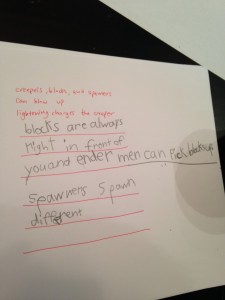 creepers, blocks, and spawners
can blow up
lightening changes the creeper
blocks are always
right in front of
you and ender men can pick blocks up
spawners spawn
different